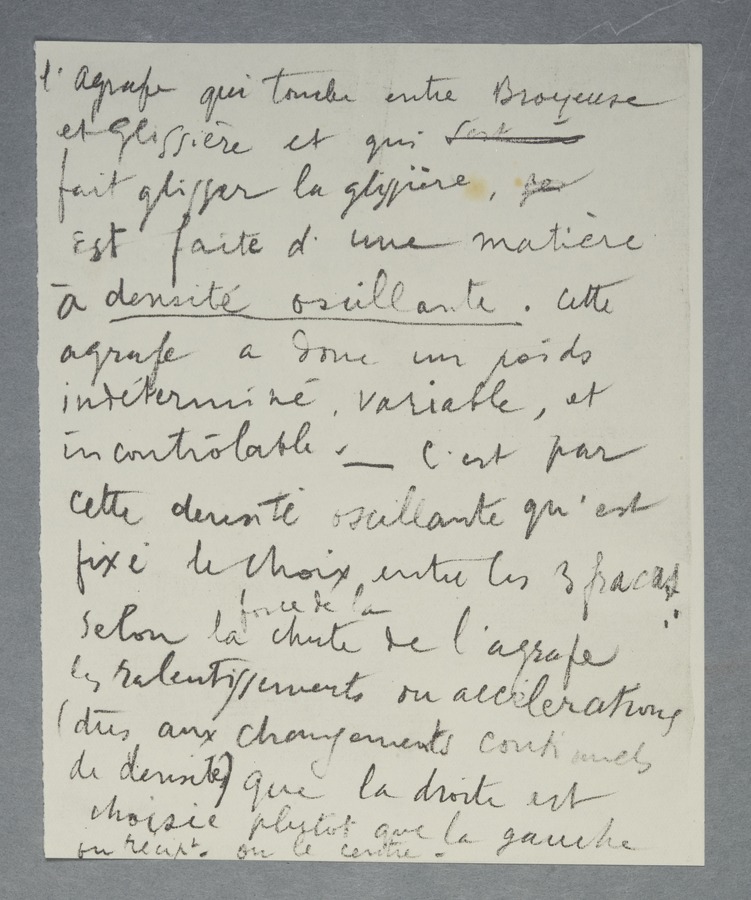 l'agrafe qui tombe entre Broyeuse
et Glissière et qui sert
fait glisser la glissière, se
Est faite d'une matière
à densité oscillante. Cette
agrafe a donc un poids
indéterminé, variable, et
incontrôlable. — C'est par
cette densité oscillante qu'est
fixé le choix entre les 3 fracas
:
force de la
selon la chute de l'agrafe
les ralentissements ou accélérations
(dûs aux changements continuels
de densité) que la droite est
choisie plutôt que la gauche
ou récipt. ou le centre.